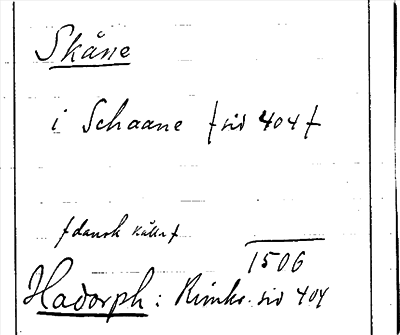 Skåne
i Schaane / sid 404 /
/ dansk källa /
1506
Hadorph: Rimkr. sid 404